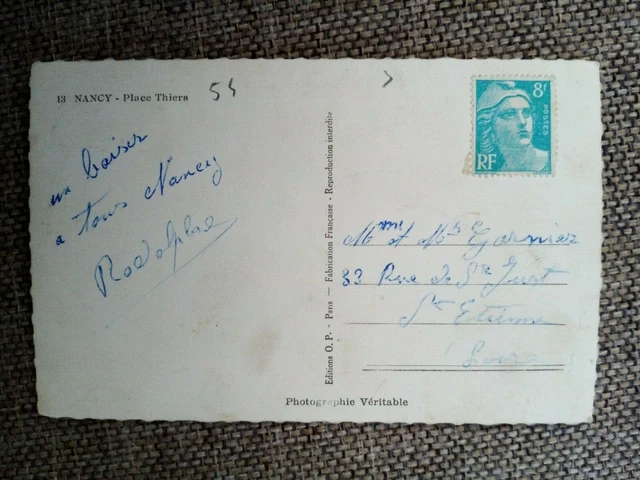 13 NANCY - Place Thiers
54
un baiser
a tous Nancy
Rodolphe
Editions O. P. - Paris — Fabrication Française - Reproduction interdite
8f
POSTES
RF
Mme et Mr Garnier
33 Rue de St Just
St Etienne
Loire
Photographie Véritable